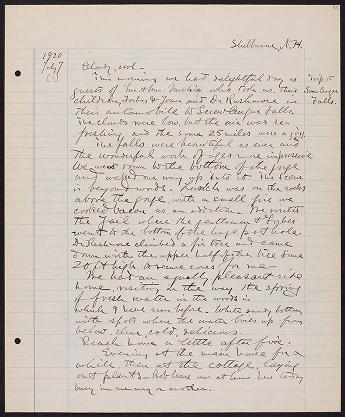 Shelburne, N.H.
1920
July 7
Cloudy, cool -
This morning we had delightful day as
guests of Mr & Mrs. who took us, their
Trip to
children, Forbes & Jean and Dr. Rushmore in
Screw Auger
their automobile to Screw Auger Falls.
Falls.
The clouds were low, but the air was re-
freshing, and the some 25 miles were a joy.
The falls were beautiful as ever and
the wonderful work of ages and impressive
We went down to the bottom of the gorge
and walked our way up into it. The scene
is beyond words. Lunch was on the rocks
above the gorge, with a small fire we
cooked bacon as an addition. We visited
the where the gentlemen & Forbes
went to the bottom of the huge pot hole.
Dr. Rushmore climbed a fir tree and came
down with the upper half of the tree some
20 ft high to secure cones for me -
We had an equally pleasant ride
home, visiting on the way the spring
of fresh water in the woods in
which I have been before. White sandy bottom
with spots where the water boils up from
below, clear, cold, delicious.
Reach home a little after five.
Evening at the main house for a
while, then at the cottage, laying
out plants -